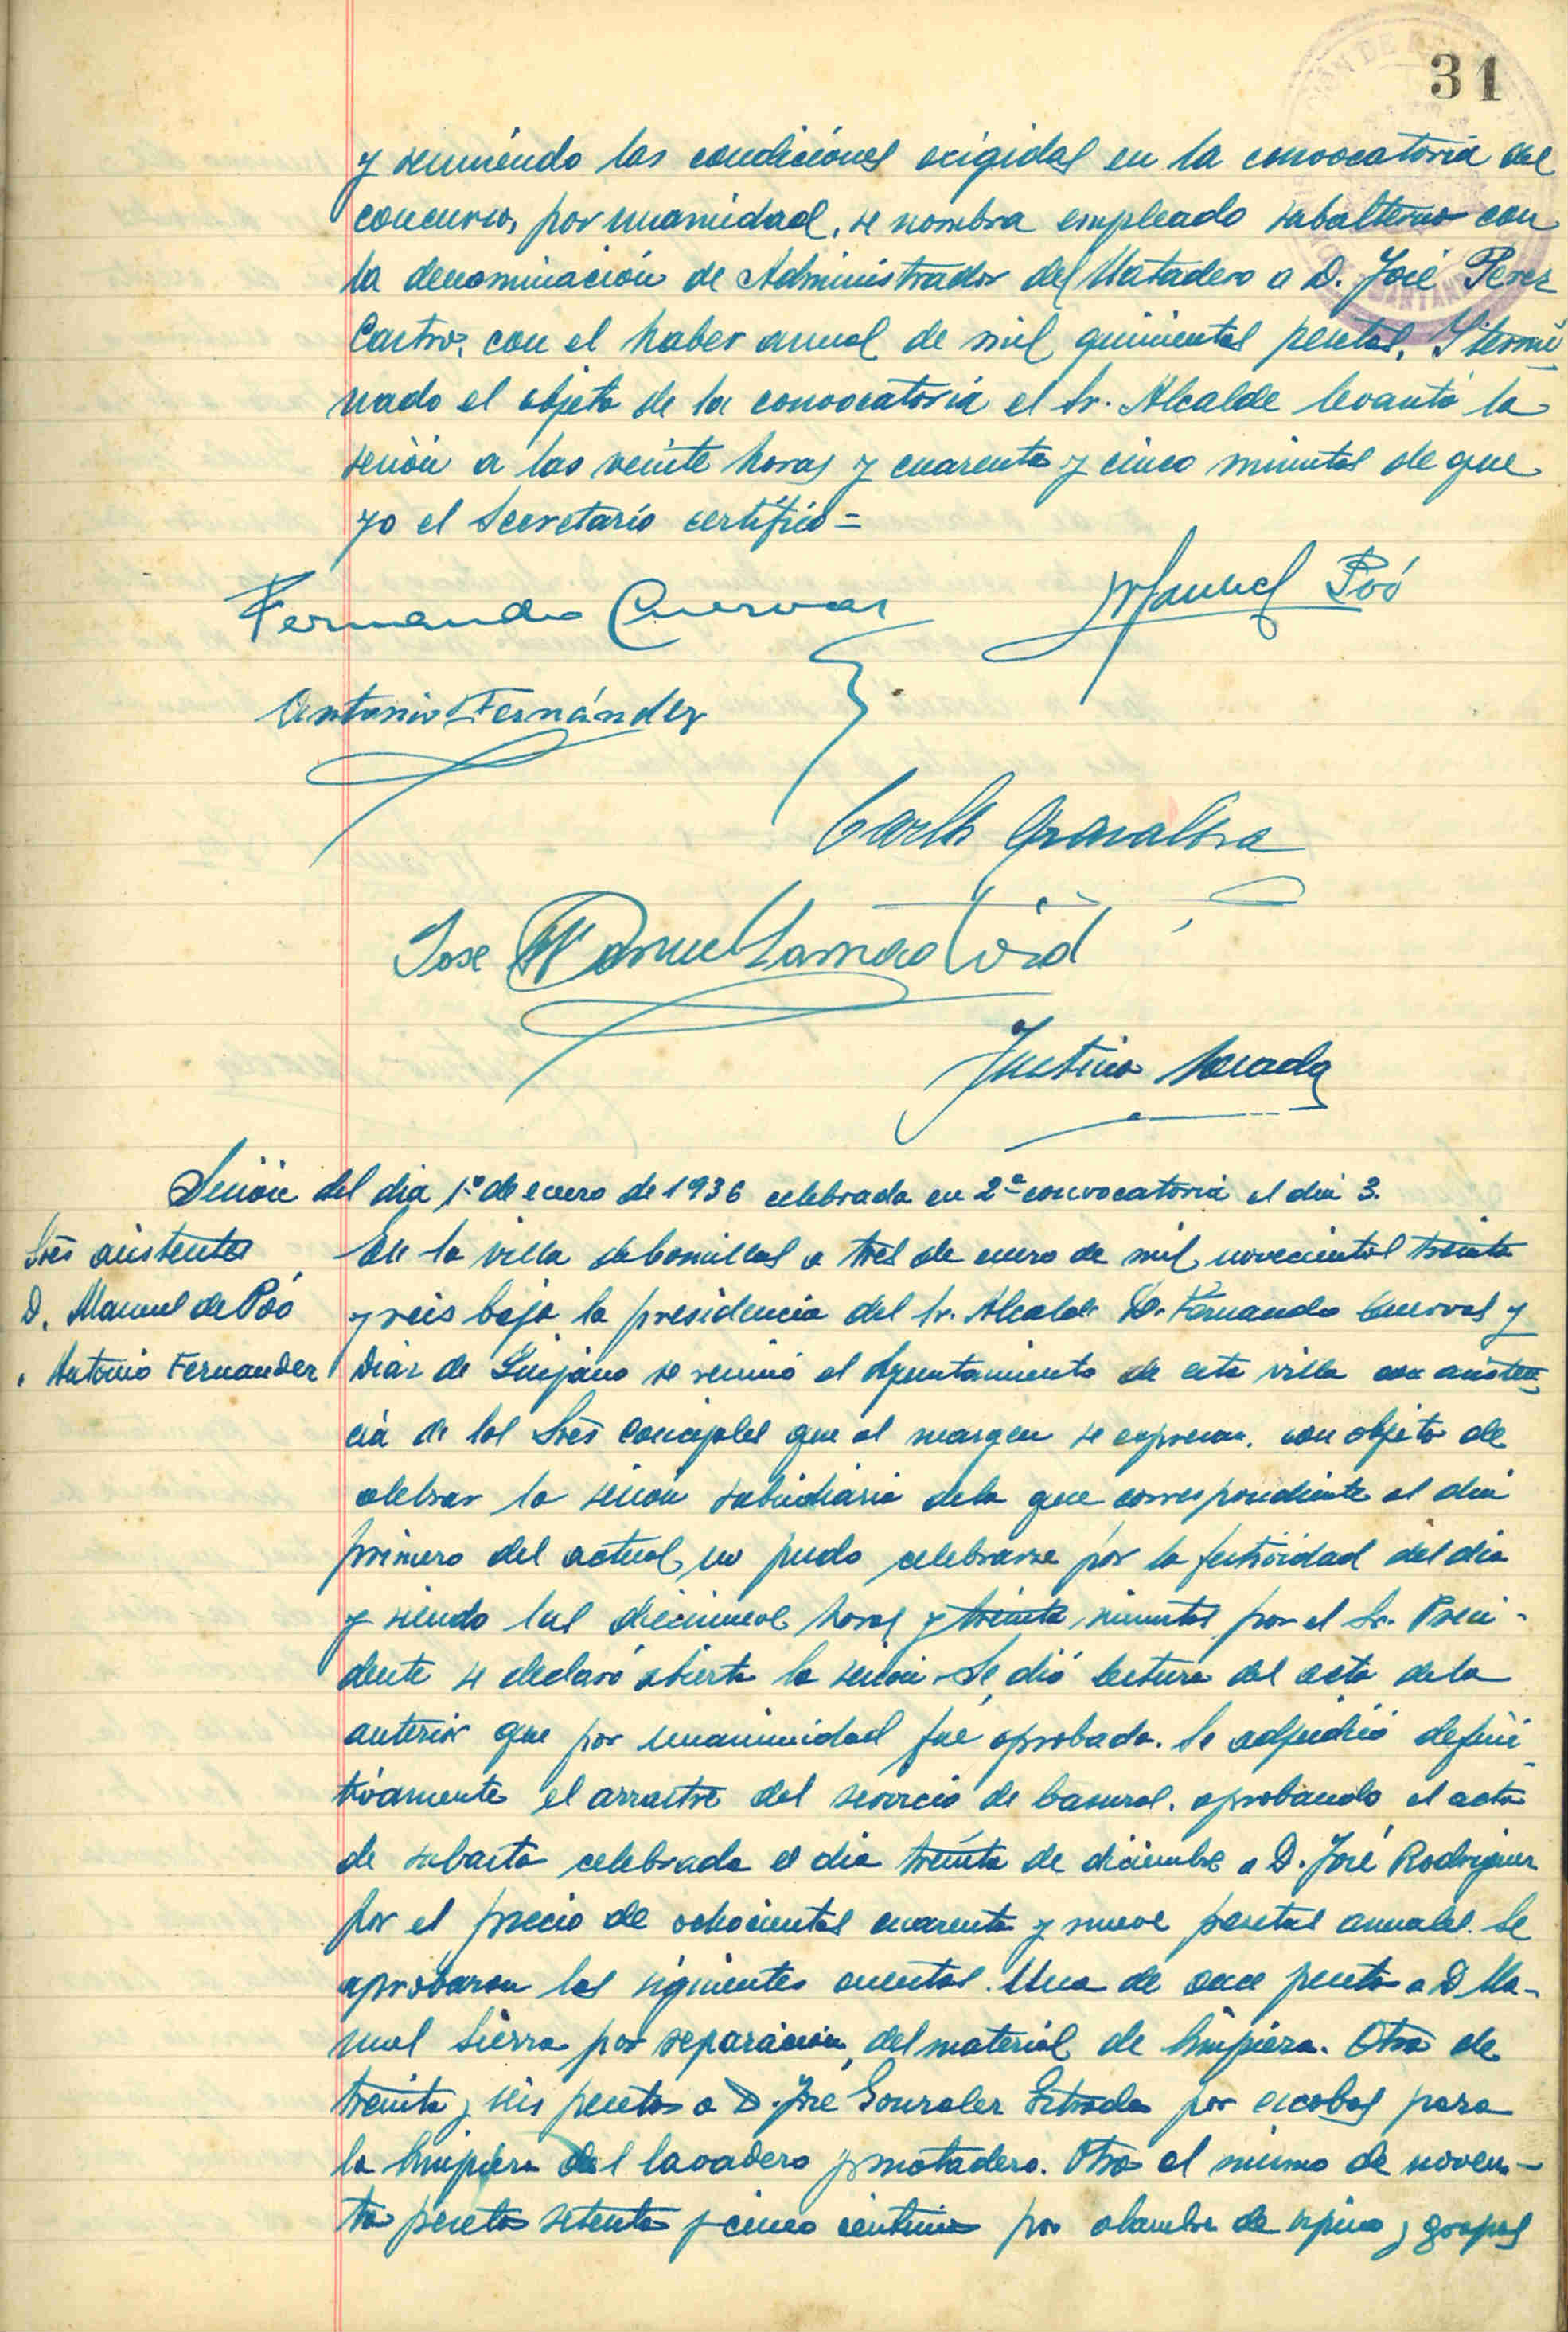 31
y reuniendo las condiciones exigidas en la convocatoria del
concurso, por unamidad, se nombra empleado subalterno con
la denominación de Administrador del Matadero a D. José Perez
Castro, con el haber anual de mil quinientas pesetas. Y termi
nado el objeto de la convocatoria el Sr. Alcalde levantó la
sesión a las veinte horas y cuarenta y cinco minutos de que
yo el Secretario certifico=
Fernando Cuervas
Manuel Poó
Antonio Fernández
Carlos
Jose Manuel Lamadrid
Justino
Sesión del dia 1º de enero de 1936 celebrada en 2ª convocatoria el dia 3.
Sres asistentes
D. Manuel de Poó
" Antonio Fernandez
En la villa de Comillas a tres de enero de mil novecientos treinta
y seis bajo la presidencia del Sr. Alcalde D. Fernando Cuervas y
Diaz de Quijano se reunió el Ayuntamiento de esta villa con asisten
cia de los Sres Concejales que al margen se expresan, con objeto de
celebrar la sesión subsidiaria de la que correspondiente al dia
primero del actual, no pudo celebrarse por la festividad del dia
y siendo las diecinueve horas y treinta minutos por el Sr. Presi-
dente se declaró abierta la sesión. Se dió lectura del acta de la
anterior que por unanimidad fué aprobada. Se adjudicó defini
tivamente el arrastre del servicio de basuras, aprobando el acta
de subasta celebrada el dia treinta de diciembre a D. José Rodriguez
por el precio de ochocientas cuarenta y nueve pesetas anuales. Se
aprobaron las siguientes cuentas. Una de once pesetas a D Ma-
nuel Sierra por reparación del material de limpieza. Otra de
treinta y seis pesetas a D. José Gonzalez Estrada por escobas para
la limpieza del lavadero y matadero. Otra al mismo de noven-
ta pesetas setenta y cinco centimos por alambre de espino y grapas